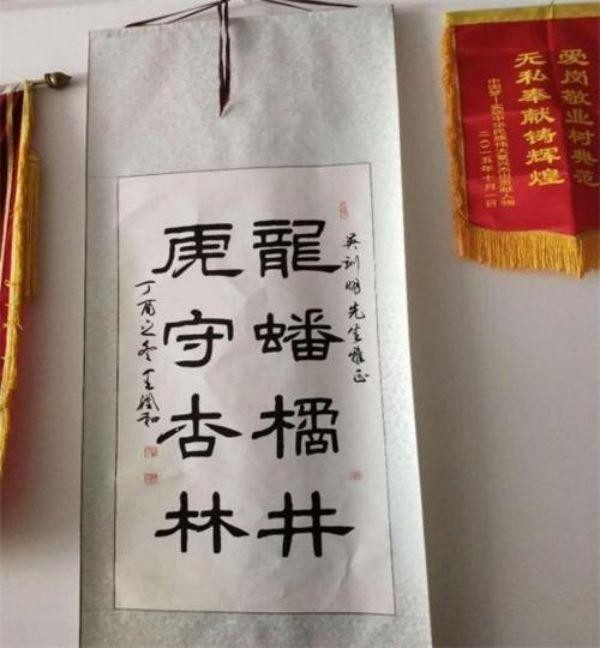 吴训明先生雅正
龍蟠橘井
虎守杏林
丁酉之冬
爱岗敬业树典范
无私奉献铸辉煌
二〇一五年十月一日